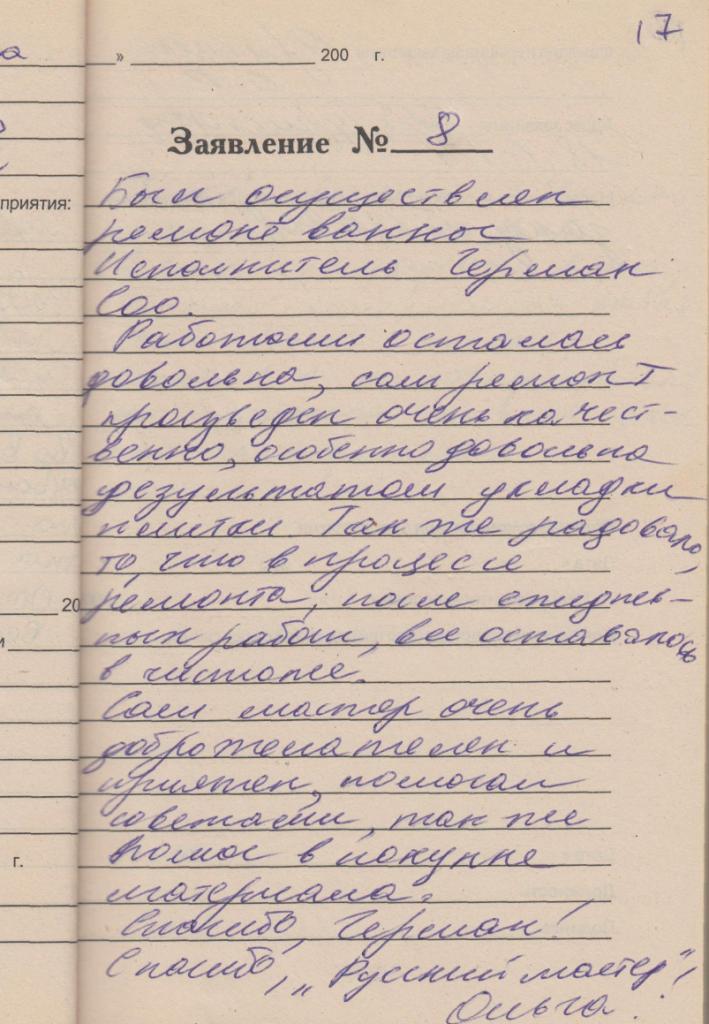 17
» 200 г.
Заявление № 8
приятия:
Был осуществлен
ремонт ванны
Исполнитель Герман
Соо.
Работами осталась
довольна, сам ремонт
произведен очень качест-
венно, особенно довольна
результатом укладки
плитки. Так же радовало,
то, что в процессе
20
ремонта, после ежеднев-
ных работ, все оставалось
в чистоте.
Сам мастер очень
доброжелателен и
приятен, помогал
советами, так же
г.
помог в покупке
материала.
Спасибо, Герман!
Спасибо, „Русский мастер"!
Ольга.